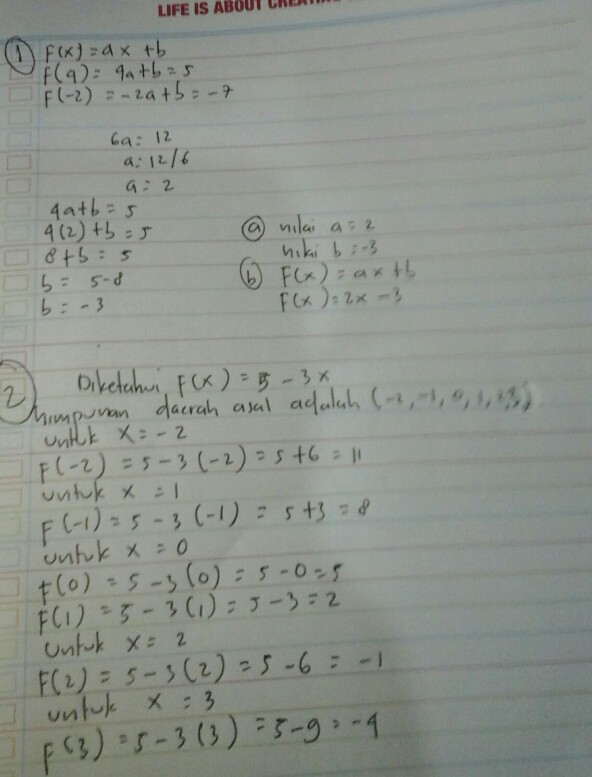 LIFE IS ABOUT
1 F(x) = ax + b
F(4) = 4a+b = 5
F(-2) = -2a+b = -7
6a = 12
a = 12/6
a = 2
4a+b = 5
4(2)+b = 5
8+b = 5
b = 5-8
b = -3
a nilai a = 2
nilai b = -3
b F(x) = ax+b
F(x) = 2x - 3
2 Diketahui F(x) = 5 - 3x
himpunan daerah asal adalah (-2, -1, 0, 1, 2, 3)
untuk x = -2
F(-2) = 5 - 3(-2) = 5+6 = 11
untuk x = 1
F(-1) = 5 - 3(-1) = 5+3 = 8
untuk x = 0
F(0) = 5 - 3(0) = 5-0 = 5
F(1) = 5 - 3(1) = 5-3 = 2
untuk x = 2
F(2) = 5 - 3(2) = 5-6 = -1
untuk x = 3
F(3) = 5 - 3(3) = 5-9 = -4